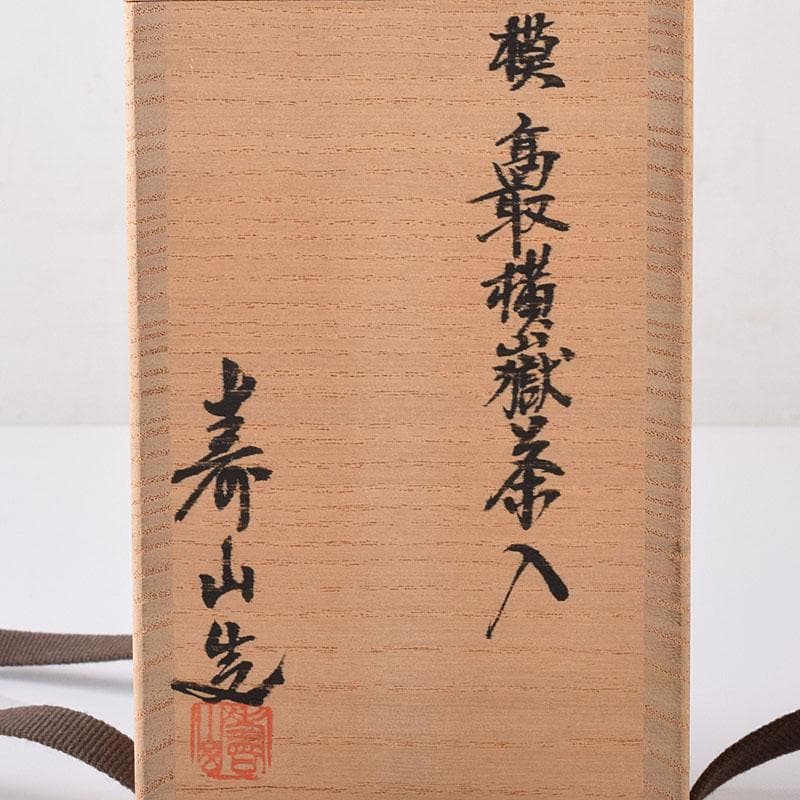 模 高取横嶽茶入
寿山造